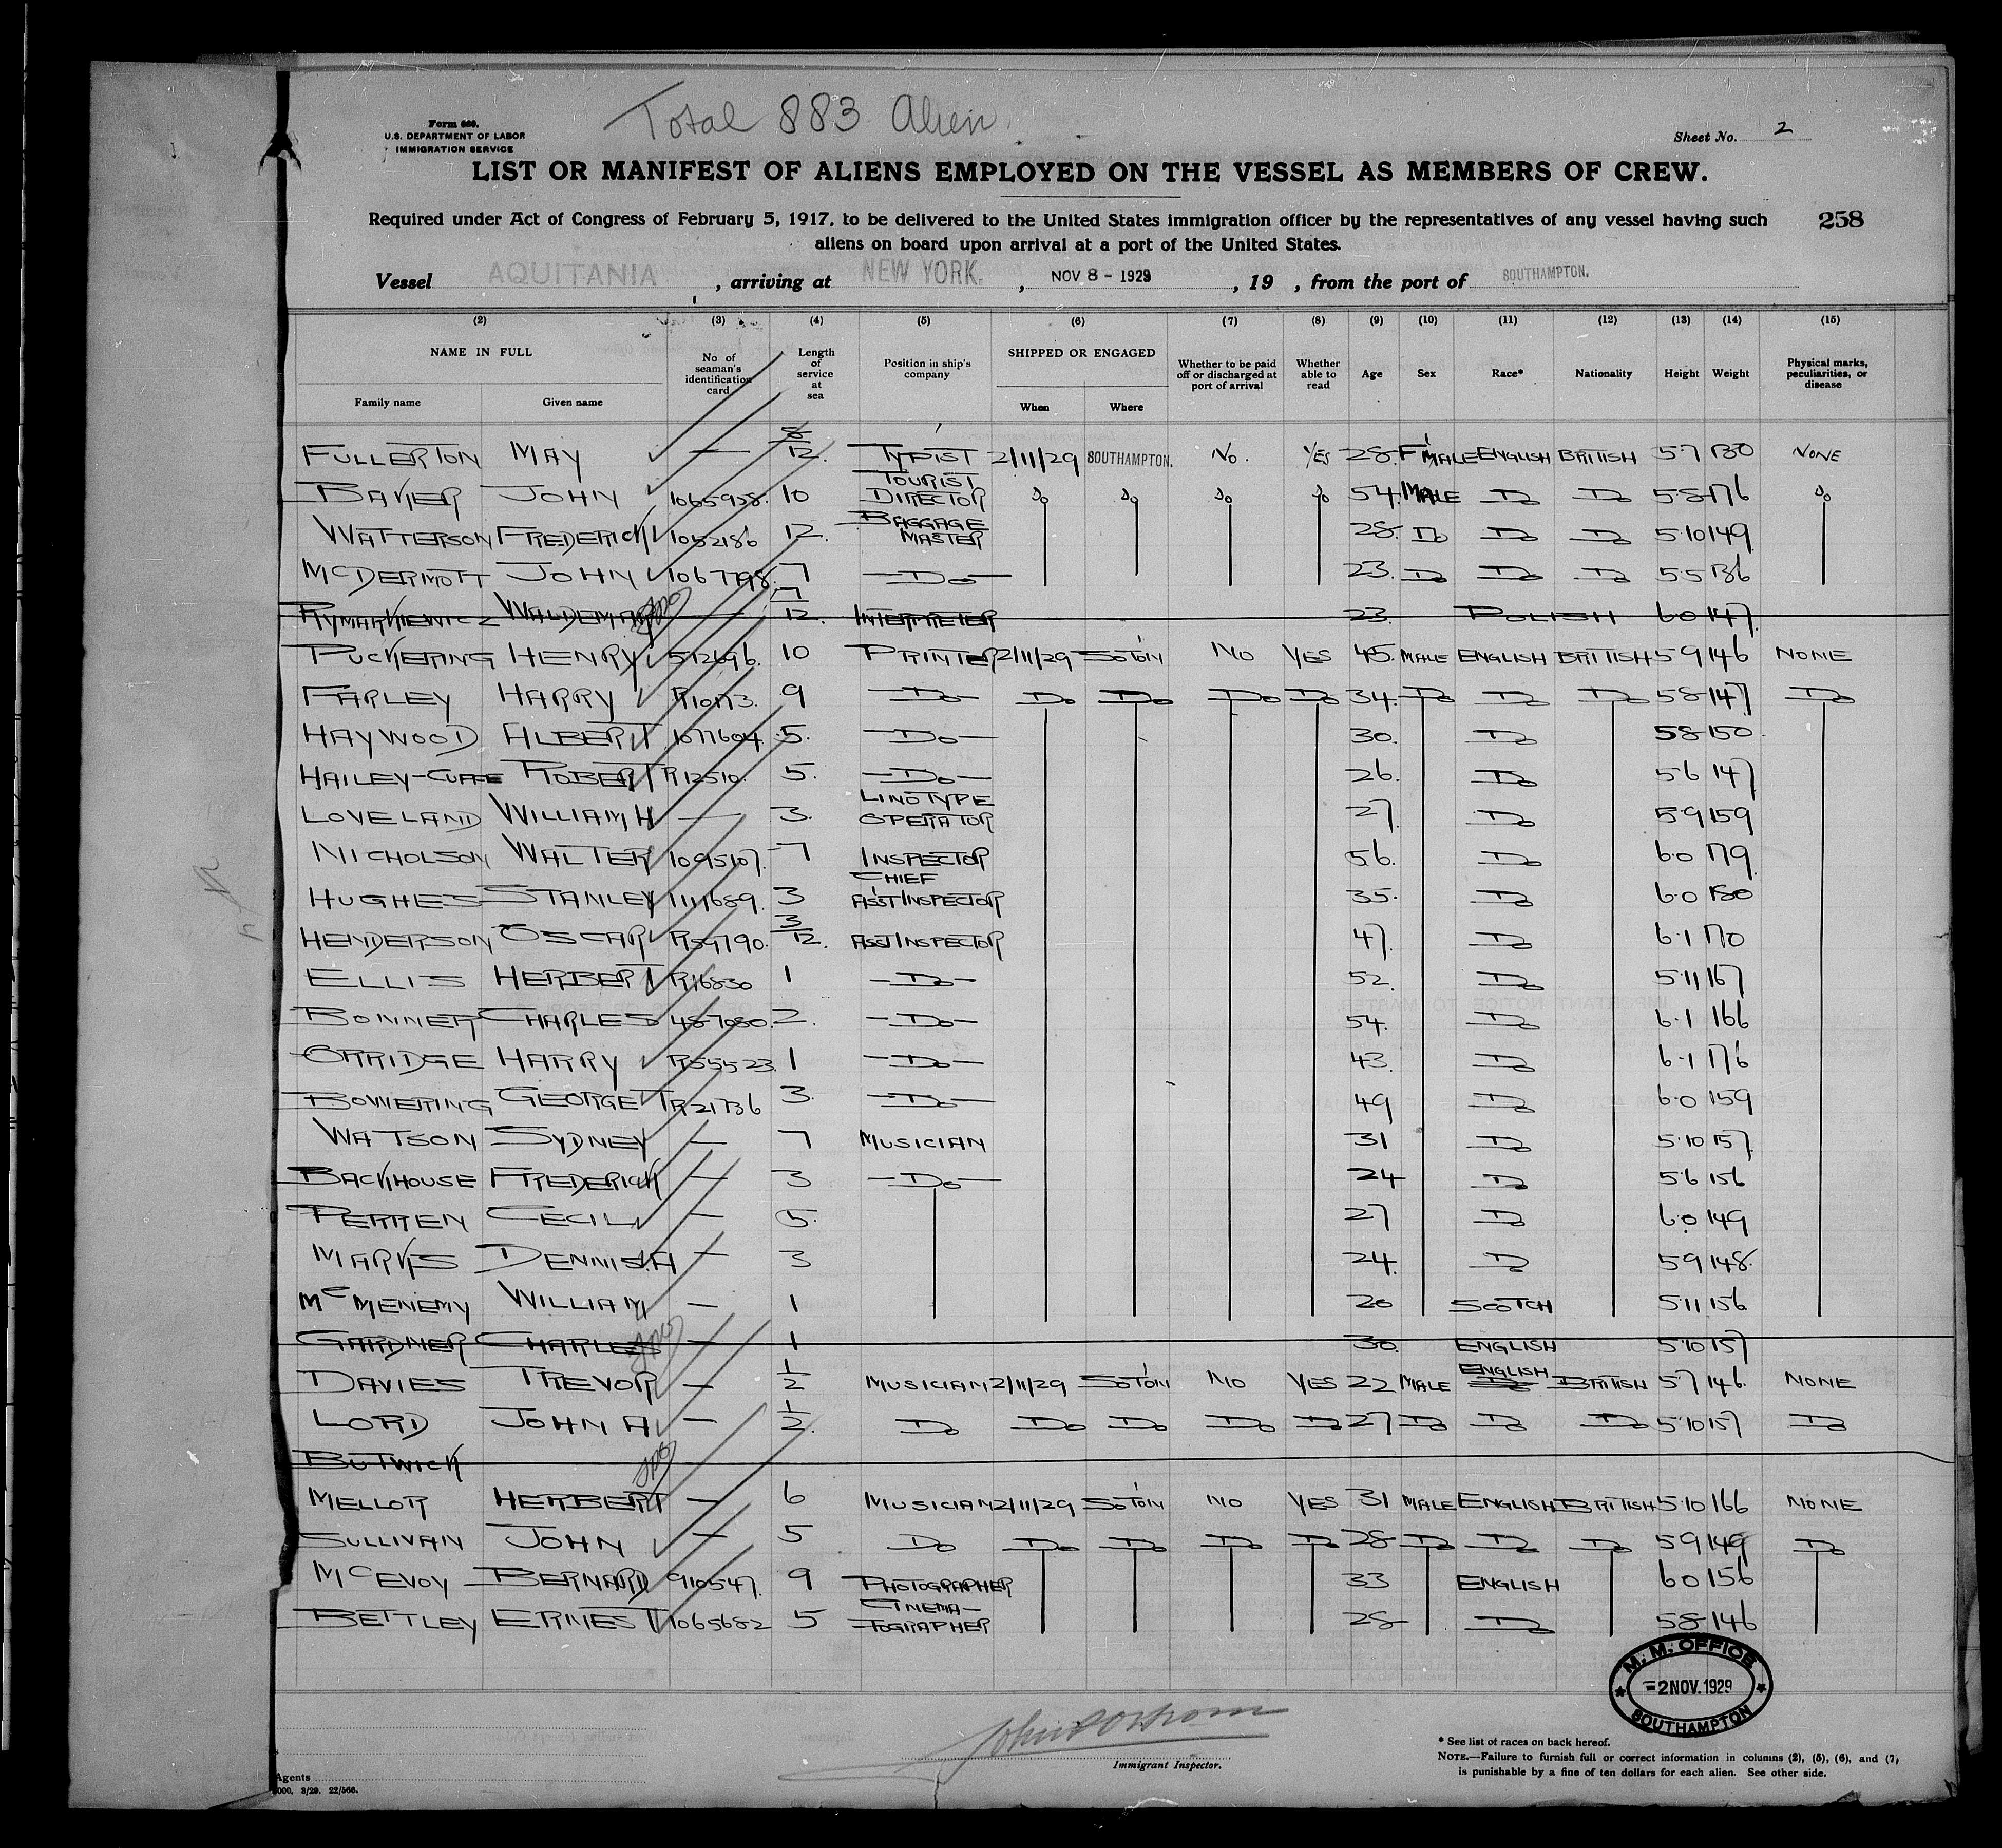 Total 883 Alien
Form 689.
U.S. DEPARTMENT OF LABOR
IMMIGRATION SERVICE
Sheet No. 2
LIST OR MANIFEST OF ALIENS EMPLOYED ON THE VESSEL AS MEMBERS OF CREW.
Required under Act of Congress of February 5, 1917, to be delivered to the United States immigration officer by the representatives of any vessel having such
258
aliens on board upon arrival at a port of the United States.
Vessel AQUITANIA, arriving at NEW YORK., NOV 8 - 1929, 19 , from the port of SOUTHAMPTON.
(2) (3) (4) (5) (6) (7) (8) (9) (10) (11) (12) (13) (14) (15)
NAME IN FULL Family name Given name No. of seaman's identification card Length of service at sea Position in ship's company SHIPPED OR ENGAGED When Where Whether to be paid off or discharged at port of arrival Whether able to read Age Sex Race* Nationality Height Weight Physical marks, peculiarities, or disease
FULLERTON MAY — 8/12. TYPIST 2/11/29 SOUTHAMPTON. NO. YES 28. F'MALE ENGLISH BRITISH 5·7 130 NONE
JOHN 10 TOURIST DIRECTOR Do Do Do Do 54. MALE Do Do 5·8 176 Do
WATTERSON FREDERICK 1052186 12. BAGGAGE MASTER 28. Do Do Do 5·10 149
McDERMOTT JOHN 1067798. 7 —Do— 23. Do Do Do 5·5 136
RYMARKIEWICZ WALDEMAR 7/12. INTERPRETER 23. POLISH 6·0 147
PUCKERING HENRY 512696. 10 PRINTER 2/11/29 SO'TON NO YES 45. MALE ENGLISH BRITISH 5·9 146 NONE
FARLEY HARRY R10173. 9 —Do— Do Do Do Do 34. Do Do Do 5·8 147 Do
HAYWOOD ALBERT 1077604. 5. —Do— 30. Do 5·8 150
HAILEY-CUFFE ROBERT R12510. 5. —Do— 26. Do 5·6 147
LOVELAND WILLIAM H — 3. LINOTYPE OPERATOR 27. Do 5·9 159
NICHOLSON WALTER 1095107. 7 INSPECTOR 56. Do 6·0 179
HUGHES STANLEY 1111689. 3 CHIEF ASS'T INSPECTOR 35. Do 6·0 180
HENDERSON OSCAR R59790. 3/12. ASS'T INSPECTOR 47. Do 6·1 170
ELLIS HERBERT R16830 1 —Do— 52. Do 5·11 167
BONNER CHARLES 487080. 2. —Do— 54. Do 6·1 166
ORRIDGE HARRY R55523. 1 —Do— 43. Do 6·1 176
BOWERING GEORGE T R21736 3. —Do— 49 Do 6·0 159
WATSON SYDNEY — 7 MUSICIAN 31 Do 5·10 157
BACKHOUSE FREDERICK — 3 —Do— 24 Do 5·6 156
PERREN CECIL — 5. 27 Do 6·0 149
MARKS DENNIS.A — 3 24. Do 5·9 148.
McMENEMY WILLIAM — 1 20 SCOTCH 5·11 156
GARDNER CHARLES — 1 30. ENGLISH 5·10 157
DAVIES TREVOR — 1/2 MUSICIAN 2/11/29 SO'TON NO YES 22 MALE ENGLISH BRITISH 5·7 146. NONE
LORD JOHN A — 1/2. Do Do Do Do Do 27 Do Do Do 5·10 157 Do
BUTWICK
MELLOR HERBERT — 6 MUSICIAN 2/11/29 SO'TON NO YES 31 MALE ENGLISH BRITISH 5·10 166 NONE
SULLIVAN JOHN — 5 Do Do Do Do Do 28 Do Do Do 5·9 149 Do
McEVOY BERNARD 910547. 9 PHOTOGRAPHER 33 ENGLISH 6·0 156
BETTLEY ERNEST 1065682 5 CINEMA-TOGRAPHER 28 Do 5·8 146
M. M. OFFICE
2 NOV. 1929
SOUTHAMPTON
Immigrant Inspector.
* See list of races on back hereof.
NOTE.—Failure to furnish full or correct information in columns (2), (5), (6), and (7),
is punishable by a fine of ten dollars for each alien. See other side.
Agents
000. 3/29. 22/566.